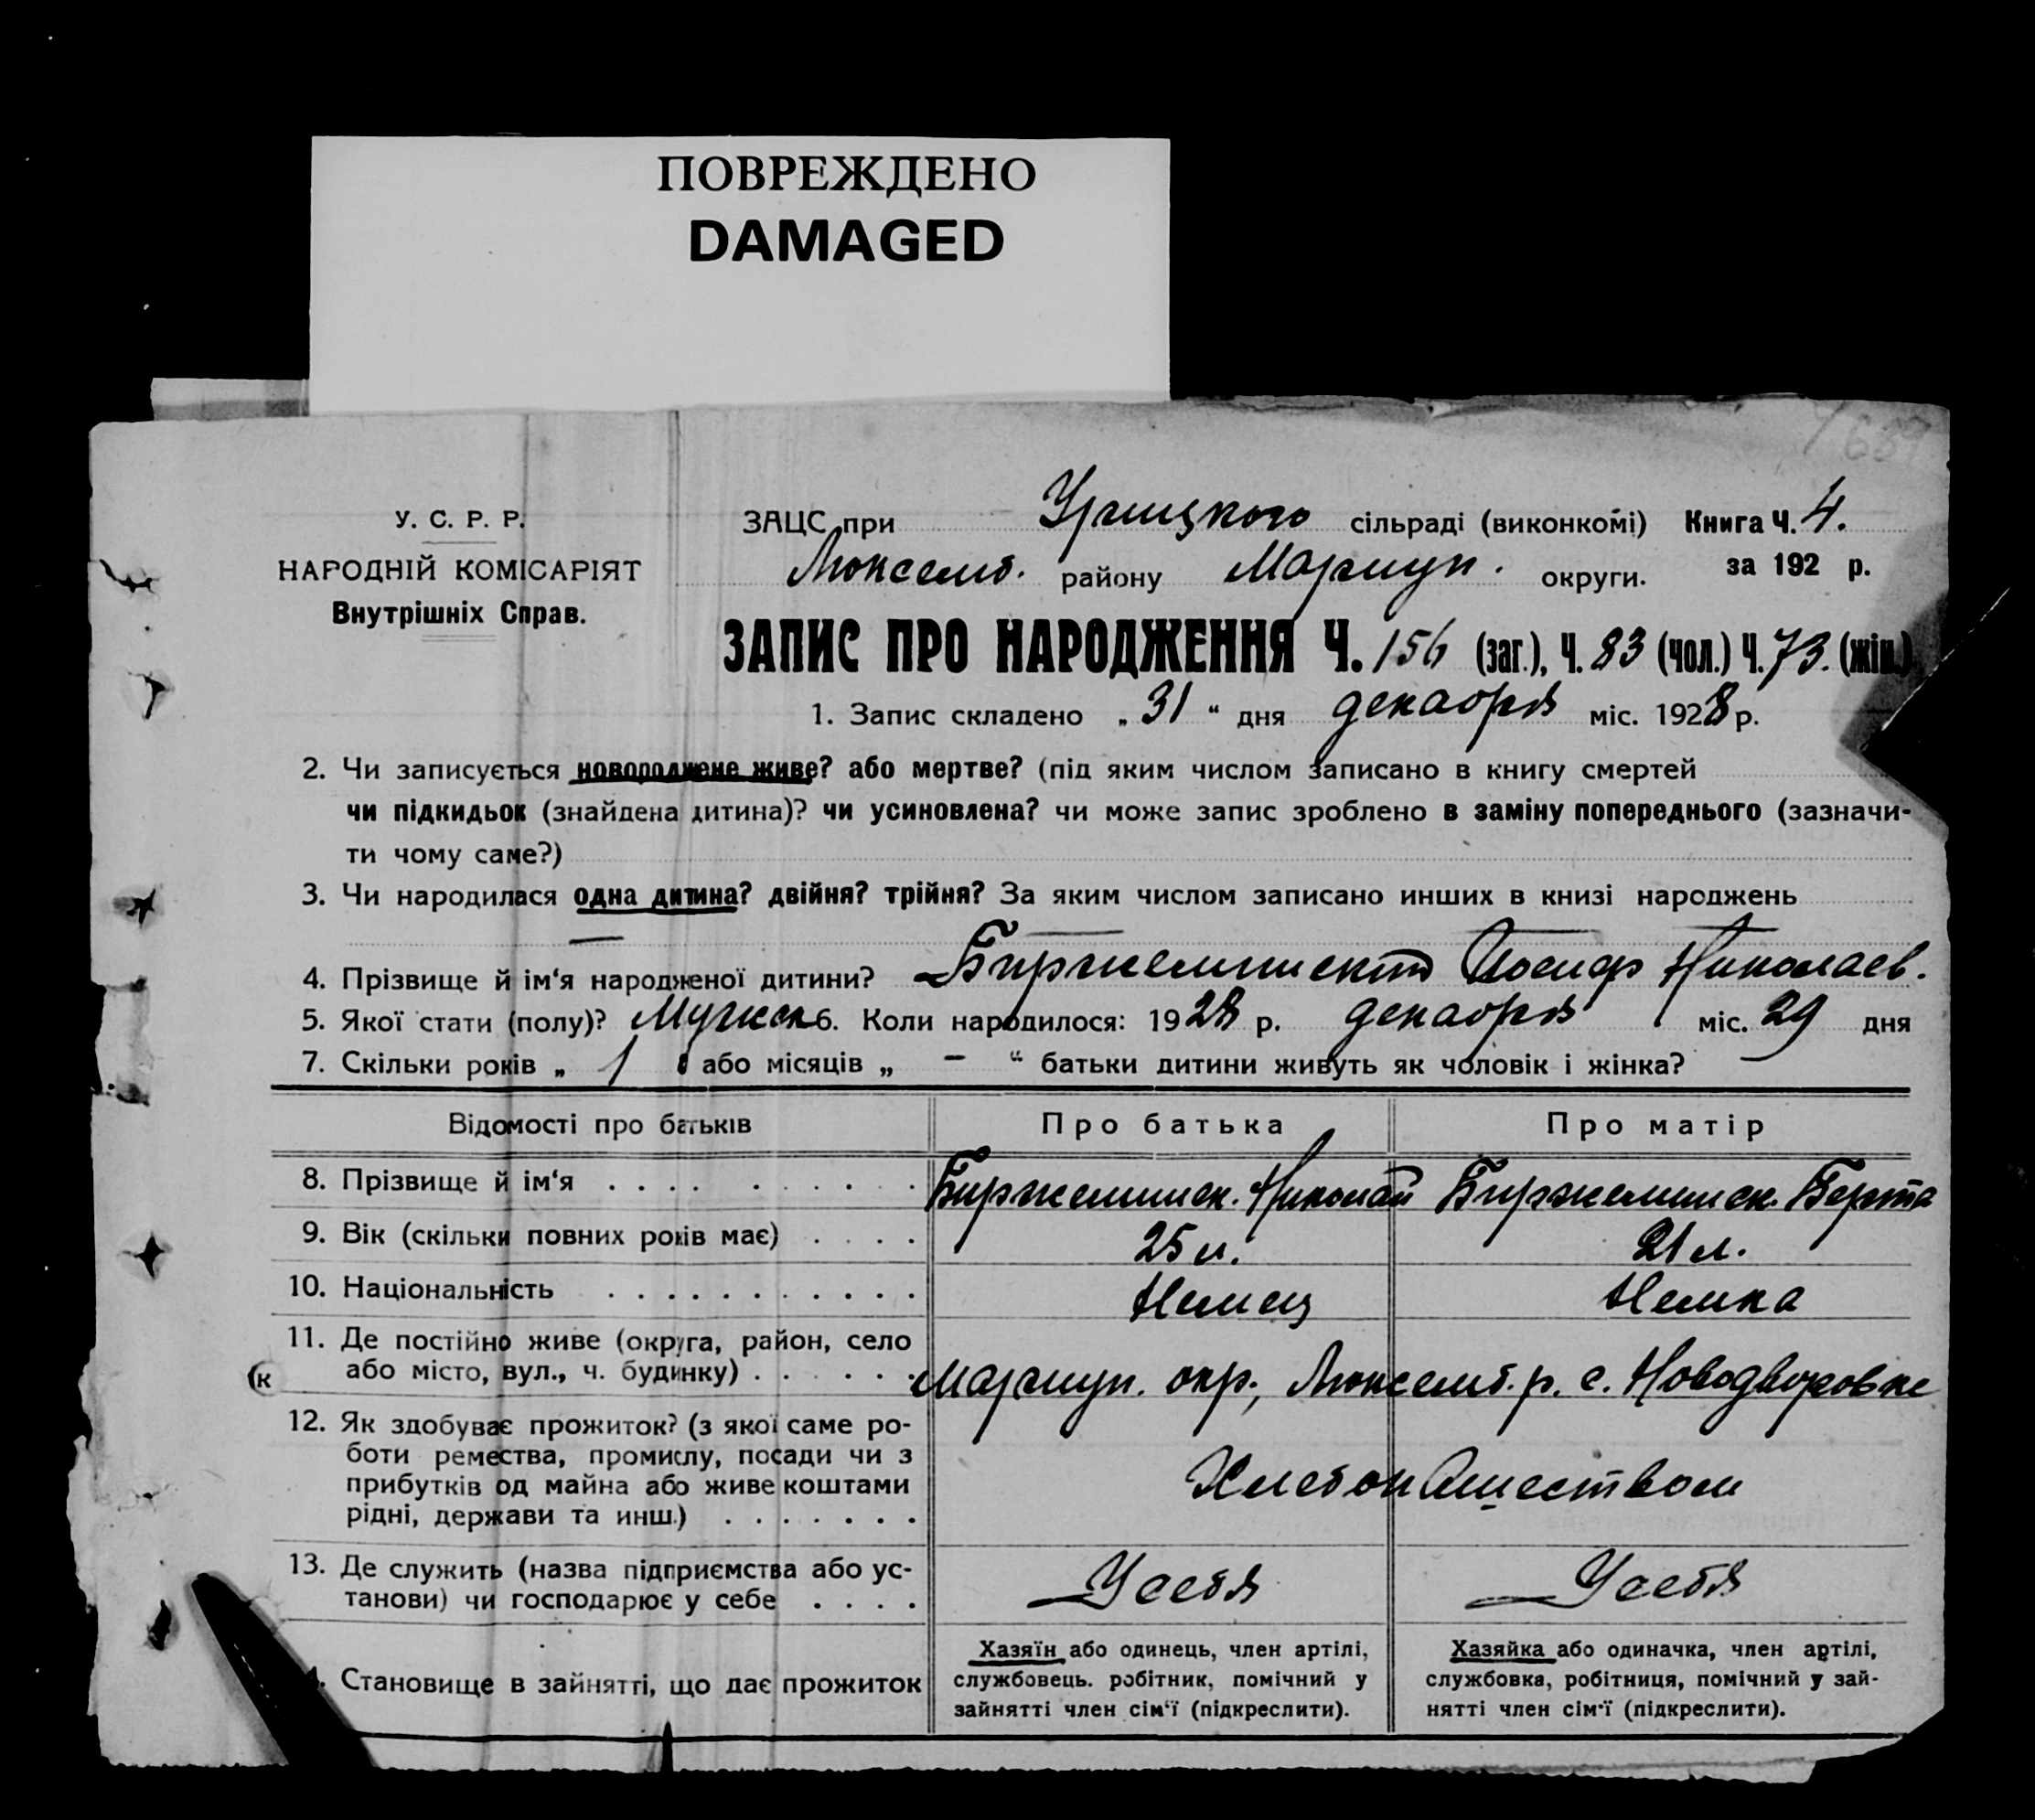 ПОВРЕЖДЕНО
DAMAGED
У. С. Р. Р.
НАРОДНІЙ КОМІСАРІЯТ
Внутрішніх Справ.
ЗАЦС при Урицкого сільраді (виконкомі) Книга Ч. 4.
Люксемб. району Мариуп. округи. за 192 р.
ЗАПИС ПРО НАРОДЖЕННЯ Ч. 156 (заг.), Ч. 83 (чол.) Ч. 73. (жін.)
1. Запис складено „ 31 “ дня декабря міс. 1928 р.
2. Чи записується новороджене живе? або мертве? (під яким числом записано в книгу смертей
чи підкидьок (знайдена дитина)? чи усиновлена? чи може запис зроблено в заміну попереднього (зазначи-
ти чому саме?)
3. Чи народилася одна дитина? двійня? трійня? За яким числом записано инших в книзі народжень
—
4. Прізвище й ім‘я народженої дитини? Иосиф Николаев.
5. Якої стати (полу)? Мужск 6. Коли народилося: 1928 р. декабря міс. 29 дня
7. Скільки років „ 1 “ або місяців „ — “ батьки дитини живуть як чоловік і жінка?
Відомості про батьків Про батька Про матір
8. Прізвище й ім‘я . . . . Николай Берта
9. Вік (скільки повних років має) . . . . 25 л. 21 л.
10. Національність . . . . Немец Немка
11. Де постійно живе (округа, район, село
або місто, вул., ч. будинку) . . . . Мариуп. окр., Люксемб. р. с. Новодворовке
(к
12. Як здобуває прожиток? (з якої саме ро-
боти ремества, промислу, посади чи з
прибутків од майна або живе коштами
рідні, держави та инш.) . . . . Хлебопашеством
13. Де служить (назва підприємства або ус-
танови) чи господарює у себе . . . . У себя У себя
Становище в зайнятті, що дає прожиток
Хазяїн або одинець, член артілі,
службовець. робітник, помічний у
зайнятті член сім‘ї (підкреслити).
Хазяйка або одиначка, член артілі,
службовка, робітниця, помічний у зай-
нятті член сім‘ї (підкреслити).